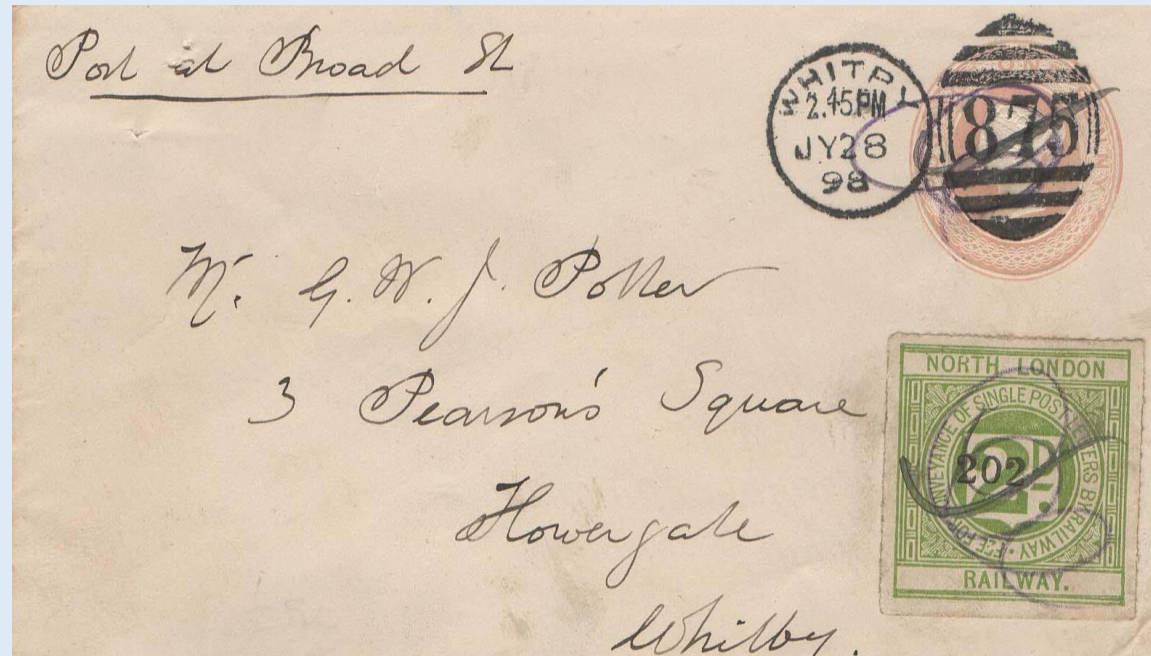 Post at Broad St
WHITBY
2.45PM
JY28
98
875
Mr. G. W. J. Potter
3 Pearson's Square
Flowergate
Whitby.
NORTH LONDON
FEE FOR CONVEYANCE OF SINGLE POST LETTERS BY RAILWAY
202
2D.
RAILWAY.